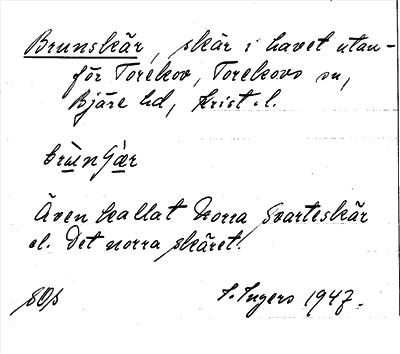 Brunskär, skär i havet utan-
för Torekov, Torekovs sn,
Bjäre hd, Krist. l.
brùnʃæ̀r
Även kallat Norra Svarteskär
el. Det norra skäret.
I. Ingers 1947.